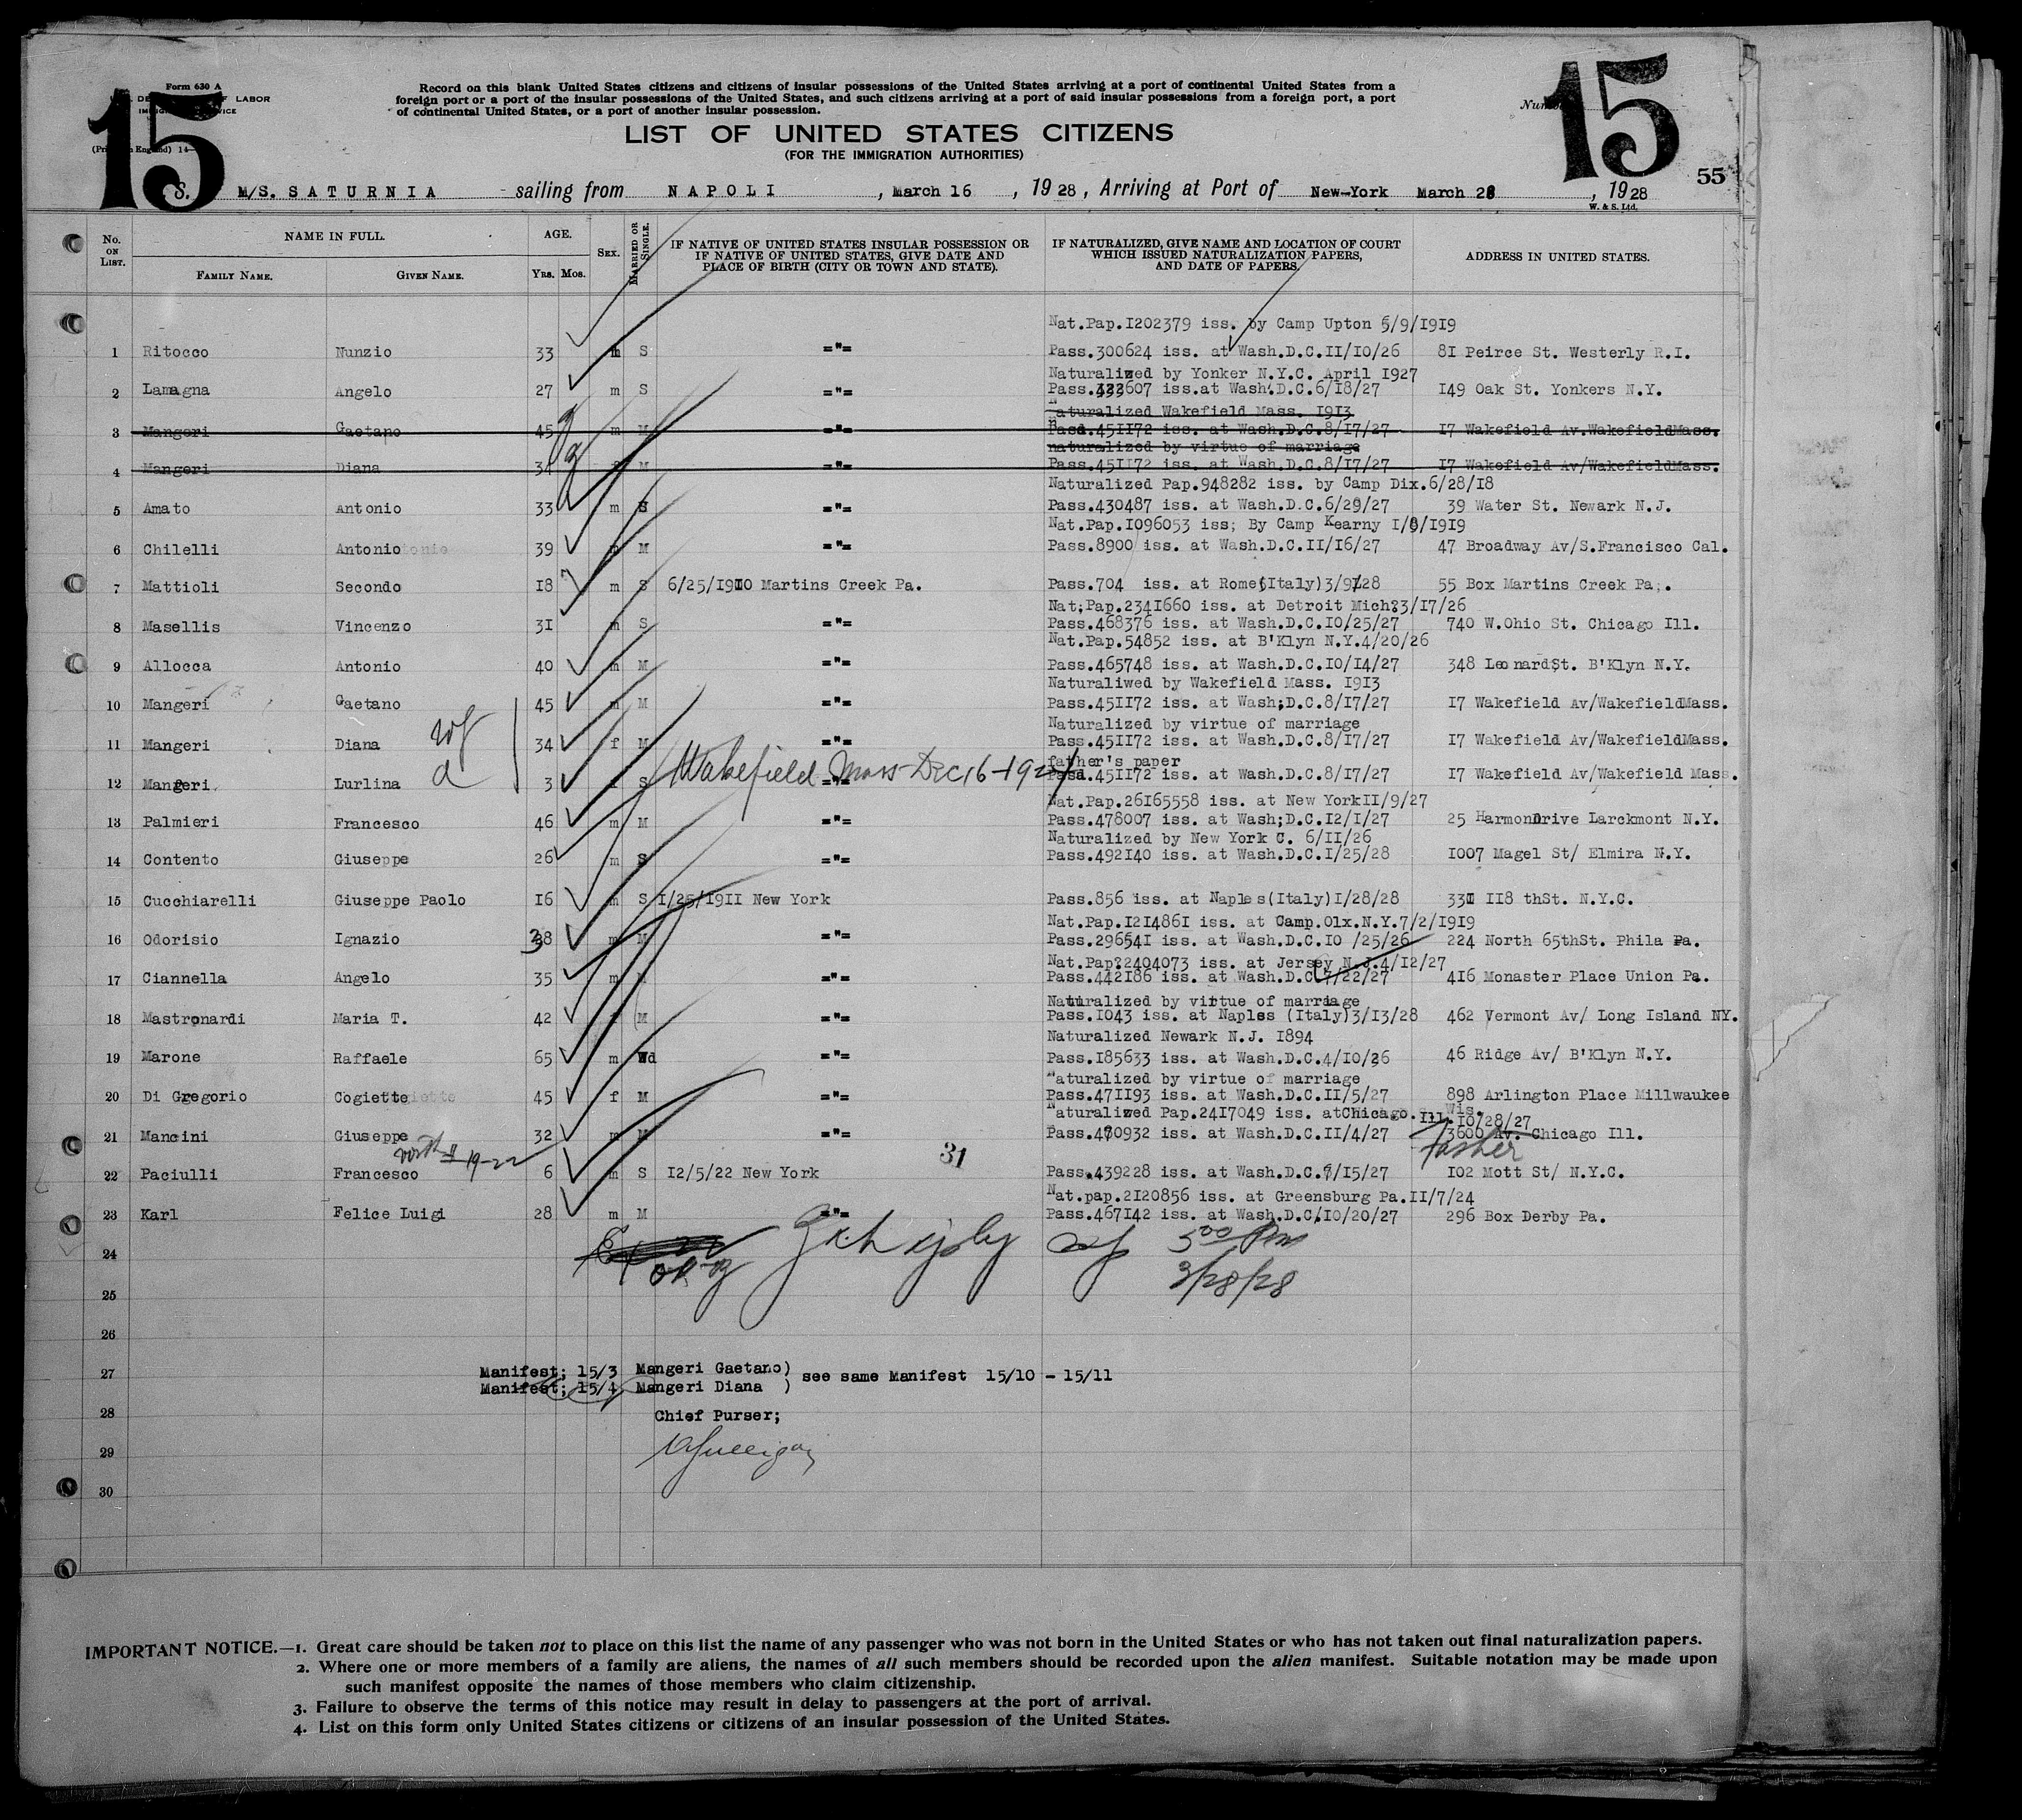 15
15
Form 630 A
LABOR
Record on this blank United States citizens and citizens of insular possessions of the United States arriving at a port of continental United States from a
foreign port or a port of the insular possessions of the United States, and such citizens arriving at a port of said insular possessions from a foreign port, a port
of continental United States, or a port of another insular possession.
LIST OF UNITED STATES CITIZENS
(FOR THE IMMIGRATION AUTHORITIES)
55
S. M/S. SATURNIA sailing from NAPOLI , March 16 , 1928, Arriving at Port of New-York March 28 , 1928
W. & S. Ltd.
No. ON LIST. NAME IN FULL. FAMILY NAME. GIVEN NAME. AGE. YRS. MOS. SEX. MARRIED OR SINGLE. IF NATIVE OF UNITED STATES INSULAR POSSESSION OR IF NATIVE OF UNITED STATES, GIVE DATE AND PLACE OF BIRTH (CITY OR TOWN AND STATE). IF NATURALIZED, GIVE NAME AND LOCATION OF COURT WHICH ISSUED NATURALIZATION PAPERS, AND DATE OF PAPERS. ADDRESS IN UNITED STATES.
Nat.Pap.I202379 iss. by Camp Upton 5/9/I9I9
1 Ritocco Nunzio 33 m S =”= Pass.300624 iss. at Wash.D.C.II/I0/26 8I Peirce St. Westerly R.I.
Naturalized by Yonker N.Y.C. April I927
2 Lamagna Angelo 27 m S =”= Pass.333607 iss.at Wash.D.C.6/I8/27 I49 Oak St. Yonkers N.Y.
Naturalized Wakefield Mass. I9I3
3 Mangeri Gaetano 45 m M =”= Pass.45II72 iss. at Wash.D.C.8/I7/27 I7 Wakefield Av.WakefieldMass.
naturalized by virtue of marriage
4 Mangeri Diana 34 M =”= Pass.45II72 iss. at Wash.D.C.8/I7/27 I7 Wakefield Av/WakefieldMass.
Naturalized Pap.948282 iss. by Camp Dix.6/28/I8
5 Amato Antonio 33 m S =”= Pass.430487 iss. at Wash.D.C.6/29/27 39 Water St. Newark N.J.
Nat.Pap.I096053 iss; By Camp Kearny I/8/I9I9
6 Chilelli Antonio 39 m M =”= Pass.8900 iss. at Wash.D.C.II/I6/27 47 Broadway Av/S.Francisco Cal.
7 Mattioli Secondo I8 m S 6/25/I9I0 Martins Creek Pa. Pass.704 iss. at Rome(Italy)3/9/28 55 Box Martins Creek Pa;.
Nat;Pap.234I660 iss. at Detroit Mich.3/I7/26
8 Masellis Vincenzo 3I m S =”= Pass.468376 iss. at Wash.D.C.I0/25/27 740 W.Ohio St. Chicago Ill.
Nat.Pap.54852 iss. at B'Klyn N.Y.4/20/26
9 Allocca Antonio 40 m M =”= Pass.465748 iss. at Wash.D.C.I0/I4/27 348 LeonardSt. B'Klyn N.Y.
Naturaliwed by Wakefield Mass. I9I3
10 Mangeri Gaetano 45 m M =”= Pass.45II72 iss. at Wash;D.C.8/I7/27 I7 Wakefield Av/WakefieldMass.
Naturalized by virtue of marriage
11 Mangeri Diana wf 34 f M =”= Pass.45II72 iss. at Wash.D.C.8/I7/27 I7 Wakefield Av/WakefieldMass.
father's paper
12 Mangeri Lurlina d 3 f S Wakefield Mass-Dec 16-1924 =”= Pass.45II72 iss. at Wash.D.C.8/I7/27 I7 Wakefield Av/Wakefield Mass.
Nat.Pap.26I65558 iss. at New YorkII/9/27
13 Palmieri Francesco 46 m M =”= Pass.478007 iss. at Wash;D.C.I2/I/27 25 HarmonDrive Larckmont N.Y.
Naturalized by New York C. 6/II/26
14 Contento Giuseppe 26 m S =”= Pass.492I40 iss. at Wash.D.C.I/25/28 I007 Magel St/ Elmira N.Y.
15 Cucchiarelli Giuseppe Paolo I6 m S I/25/I9II New York Pass.856 iss. at Naples(Italy)I/28/28 33I II8 thSt. N.Y.C.
Nat.Pap.I2I486I iss. at Camp.Olx.N.Y.7/2/I9I9
16 Odorisio Ignazio 38 m M =”= Pass.29654I iss. at Wash.D.C.I0 /25/26 224 North 65thSt. Phila Pa.
Nat.Pap?2404073 iss. at Jersey N.J.4/I2/27
17 Ciannella Angelo 35 m M =”= Pass.442I86 iss. at Wash.D.C.7/22/27 4I6 Monaster Place Union Pa.
Naturalized by virtue of marriage
18 Mastronardi Maria T. 42 f M =”= Pass.I043 iss. at Naples (Italy)3/I3/28 462 Vermont Av/ Long Island NY.
Naturalized Newark N.J. I894
19 Marone Raffaele 65 m Wd =”= Pass.I85633 iss. at Wash.D.C.4/I0/26 46 Ridge Av/ B'Klyn N.Y.
Naturalized by virtue of marriage
20 Di Gregorio Cogiette 45 f M =”= Pass.47II93 iss. at Wash.D.C.II/5/27 898 Arlington Place Millwaukee
Wis.
Naturalized Pap.24I7049 iss. atChicago.Ill.I0/28/27
21 Mancini Giuseppe 32 m M =”= Pass.470932 iss. at Wash.D.C.II/4/27 3600 Av. Chicago Ill.
31 Father
22 Paciulli Francesco 6 m S I2/5/22 New York Pass.439228 iss. at Wash.D.C.7/I5/27 I02 Mott St/ N.Y.C.
Nat.pap.2I20856 iss. at Greensburg Pa.II/7/24
23 Karl Felice Luigi 28 m M =”= Pass.467I42 iss. at Wash.D.C.I0/20/27 296 Box Derby Pa.
24 5 00 Pm
25 3/28/28
26
27 Manifest; 15/3 Mangeri Gaetano) see same Manifest 15/10 - 15/11
Manifest; 15/4 Mangeri Diana )
28 Chief Purser;
29
30
IMPORTANT NOTICE.—1. Great care should be taken not to place on this list the name of any passenger who was not born in the United States or who has not taken out final naturalization papers.
2. Where one or more members of a family are aliens, the names of all such members should be recorded upon the alien manifest. Suitable notation may be made upon
such manifest opposite the names of those members who claim citizenship.
3. Failure to observe the terms of this notice may result in delay to passengers at the port of arrival.
4. List on this form only United States citizens or citizens of an insular possession of the United States.